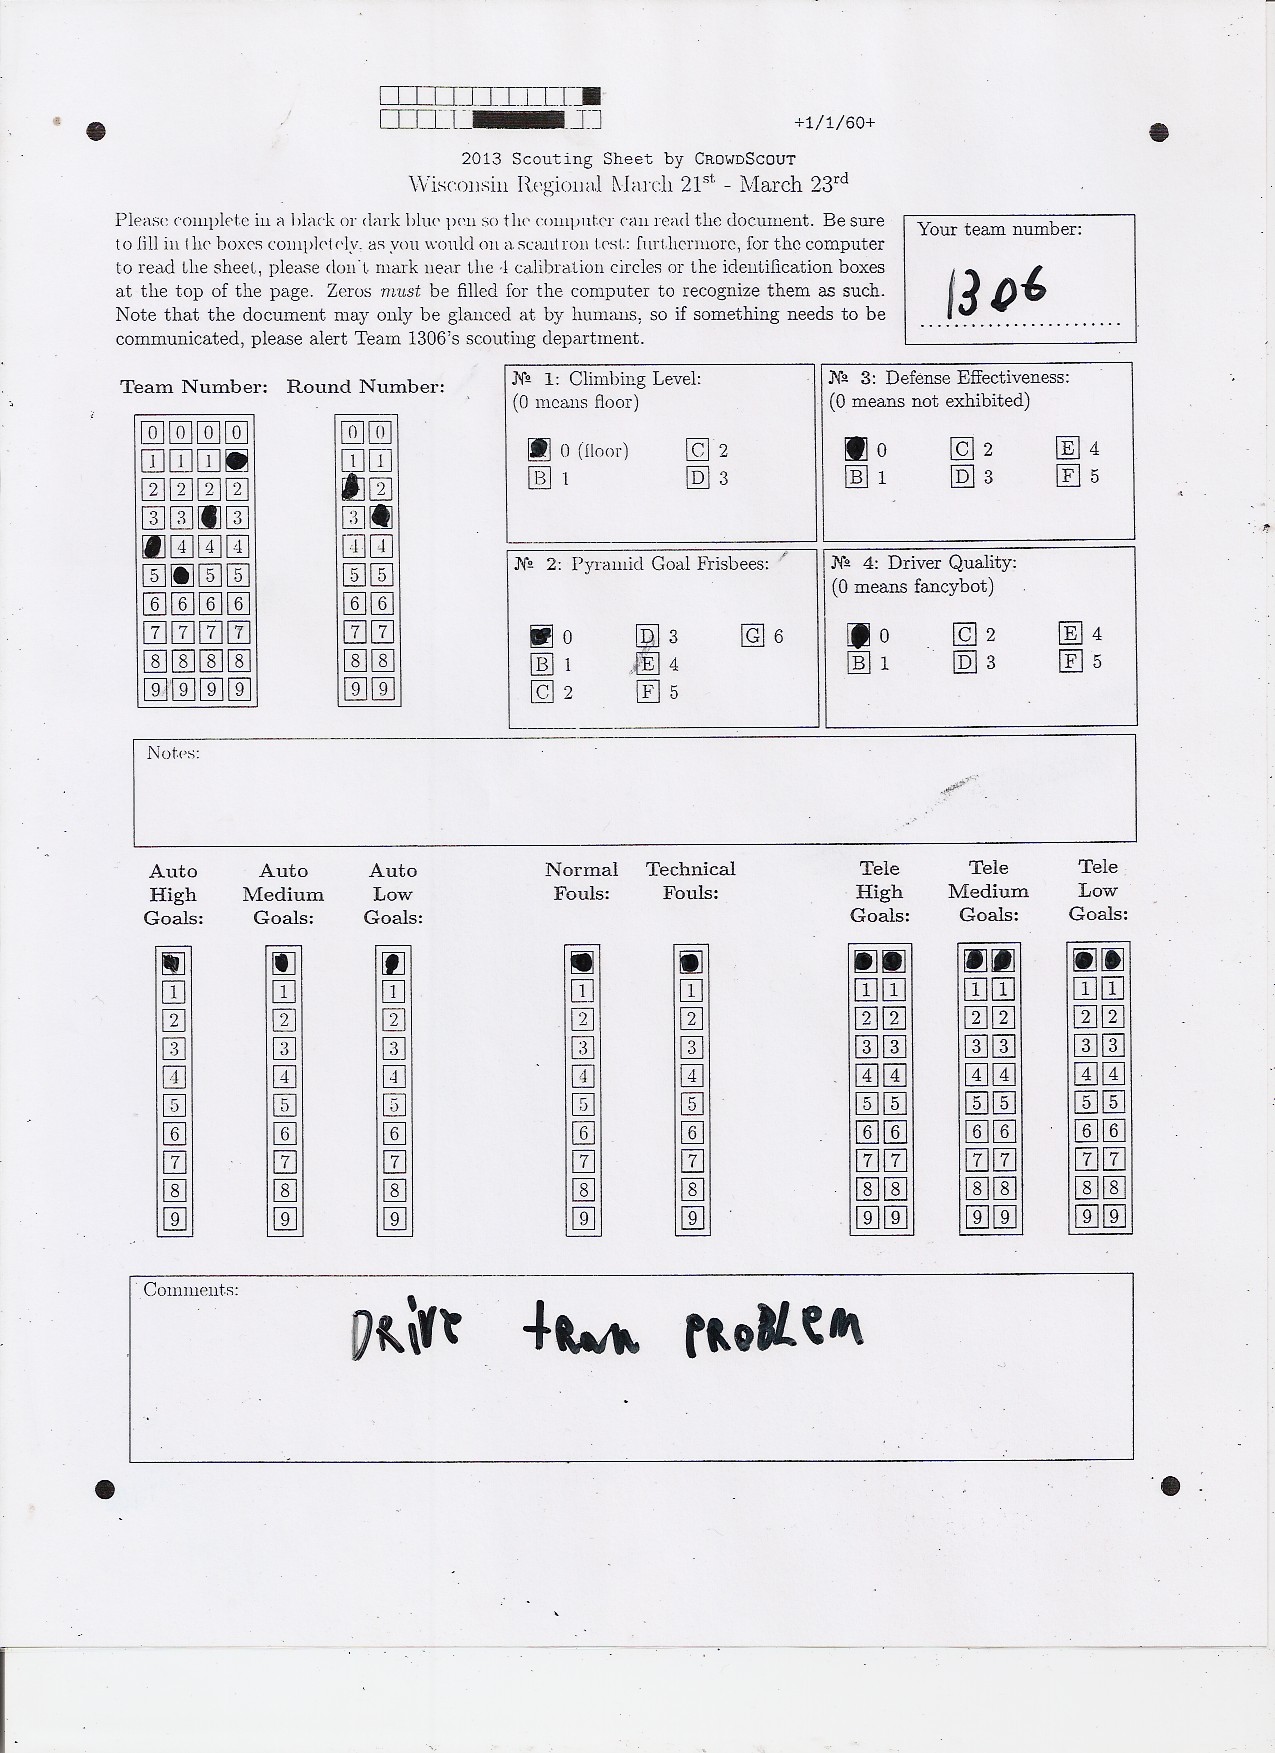 +1/1/60+
2013 Scouting Sheet by CrowdScout
Wisconsin Regional March 21st - March 23rd
Please complete in a black or dark blue pen so the computer can read the document. Be sure
to fill in the boxes completely, as you would on a scantron test; furthermore, for the computer
to read the sheet, please don't mark near the 4 calibration circles or the identification boxes
at the top of the page. Zeros must be filled for the computer to recognize them as such.
Note that the document may only be glanced at by humans, so if something needs to be
communicated, please alert Team 1306's scouting department.
Your team number:
1306
Team Number: Round Number:
0 0 0 0 0 0
1 1 1 1 1
2 2 2 2 2
3 3 3 3
4 4 4 4 4
5 5 5 5 5
6 6 6 6 6 6
7 7 7 7 7 7
8 8 8 8 8 8
9 9 9 9 9 9
№ 1: Climbing Level:
(0 means floor)
0 (floor) C 2
B 1 D 3
№ 3: Defense Effectiveness:
(0 means not exhibited)
0 C 2 E 4
B 1 D 3 F 5
№ 2: Pyramid Goal Frisbees:
0 D 3 G 6
B 1 E 4
C 2 F 5
№ 4: Driver Quality:
(0 means fancybot)
0 C 2 E 4
B 1 D 3 F 5
Notes:
Auto High Goals: Auto Medium Goals: Auto Low Goals: Normal Fouls: Technical Fouls: Tele High Goals: Tele Medium Goals: Tele Low Goals:
1 1 1 1 1 1 1 1 1 1 1
2 2 2 2 2 2 2 2 2 2 2
3 3 3 3 3 3 3 3 3 3 3
4 4 4 4 4 4 4 4 4 4 4
5 5 5 5 5 5 5 5 5 5 5
6 6 6 6 6 6 6 6 6 6 6
7 7 7 7 7 7 7 7 7 7 7
8 8 8 8 8 8 8 8 8 8 8
9 9 9 9 9 9 9 9 9 9 9
Comments:
DRive tRan PROBLem